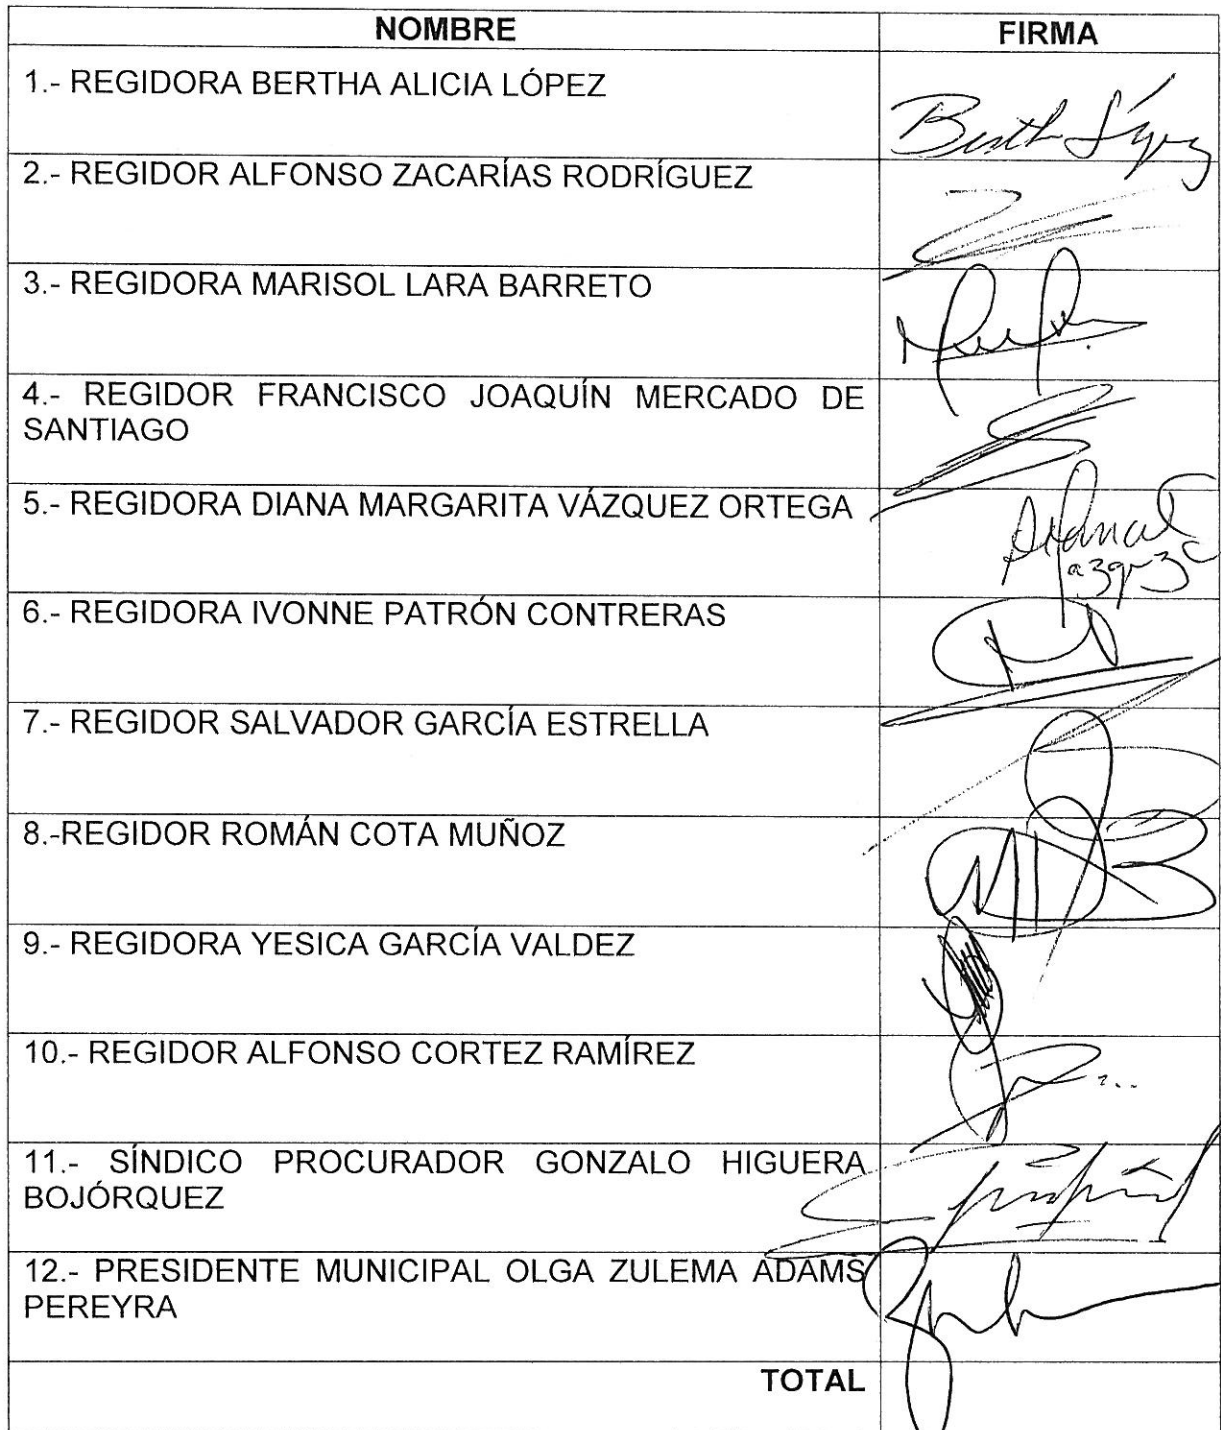 NOMBRE FIRMA
1.- REGIDORA BERTHA ALICIA LÓPEZ
Berth López
2.- REGIDOR ALFONSO ZACARÍAS RODRÍGUEZ
3.- REGIDORA MARISOL LARA BARRETO
4.- REGIDOR FRANCISCO JOAQUÍN MERCADO DE
SANTIAGO
5.- REGIDORA DIANA MARGARITA VÁZQUEZ ORTEGA
6.- REGIDORA IVONNE PATRÓN CONTRERAS
7.- REGIDOR SALVADOR GARCÍA ESTRELLA
8.-REGIDOR ROMÁN COTA MUÑOZ
9.- REGIDORA YESICA GARCÍA VALDEZ
10.- REGIDOR ALFONSO CORTEZ RAMÍREZ
11.- SÍNDICO PROCURADOR GONZALO HIGUERA
BOJÓRQUEZ
12.- PRESIDENTE MUNICIPAL OLGA ZULEMA ADAMS
PEREYRA
TOTAL